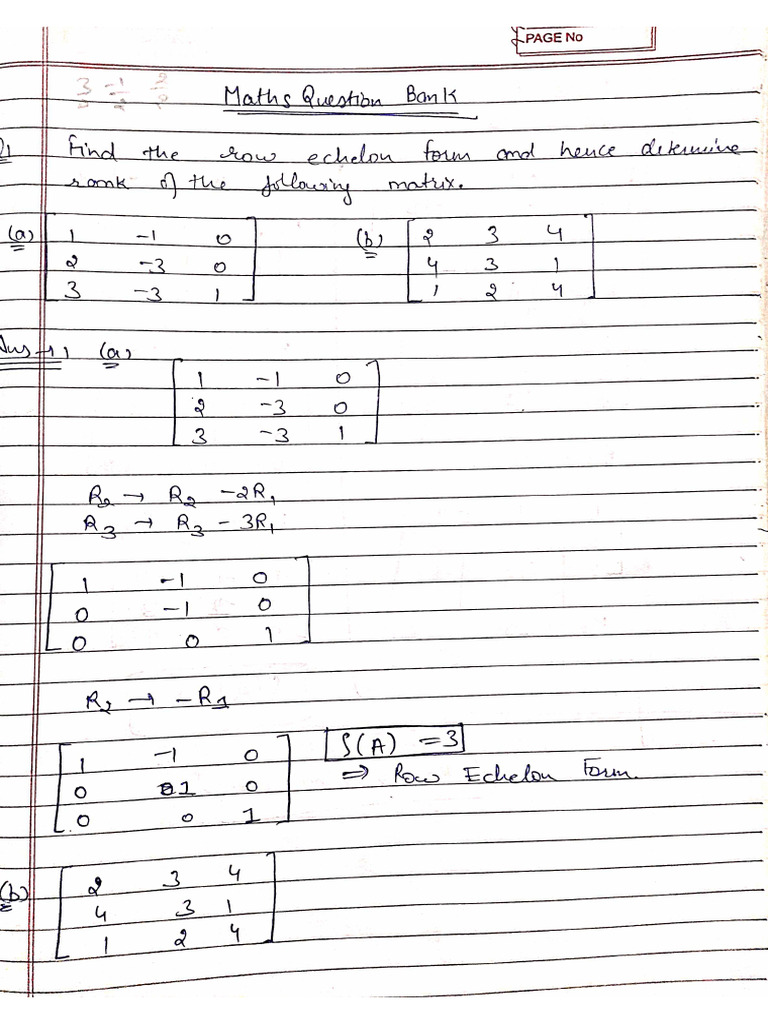 PAGE No
3 -1 2
2
Maths Question Bank
Q1 Find the row echelon form and hence determine
rank of the following matrix.
(a) 1 -1 0 (b) 2 3 4
2 -3 0 4 3 1
3 -3 1 1 2 4
Ans-1) (a)
1 -1 0
2 -3 0
3 -3 1
R2 → R2 -2R1
R3 → R3 - 3R1
1 -1 0
0 -1 0
0 0 1
R2 → -R1
1 -1 0 ρ(A) = 3
0 1 0 ⇒ Row Echelon Form.
0 0 1
(b) 2 3 4
4 3 1
1 2 4